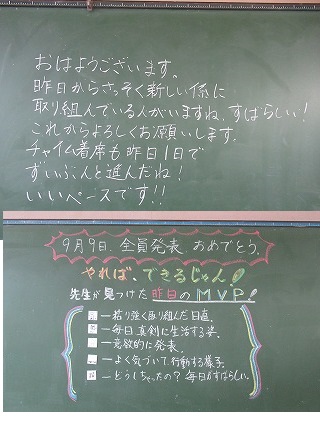 おはようございます。
昨日からさっそく新しい係に
取り組んでいる人がいますね。すばらしい!
これからよろしくお願いします。
チャイム着席も昨日1日で
ずいぶんと進んだね!
いいペースです!!
9月9日、全員発表 おめでとう。
やれば、できるじゃん!
先生が見つけた昨日のMVP!
―粘り強く取り組んだ日直。
―毎日、真剣に生活する姿。
―意欲的に発表
―よく気づいて行動する様子。
―どうしちゃったの?毎日がすばらしい。